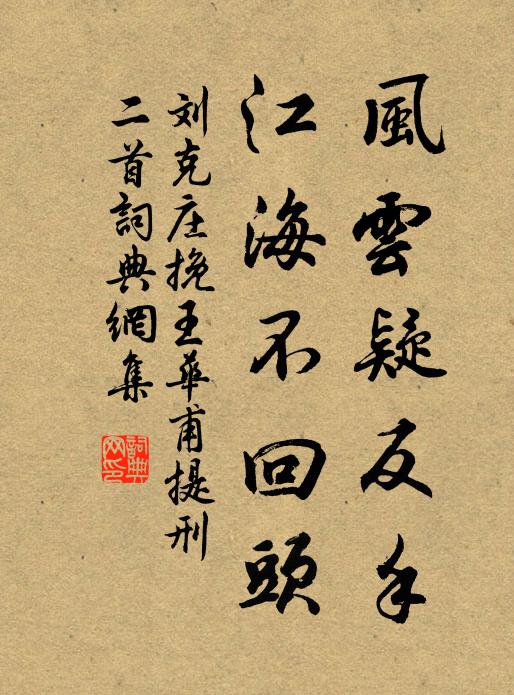 風雲疑反手
江海不回頭
刘克庄挽王華甫提刑
二首詞典網集
詞典
网印